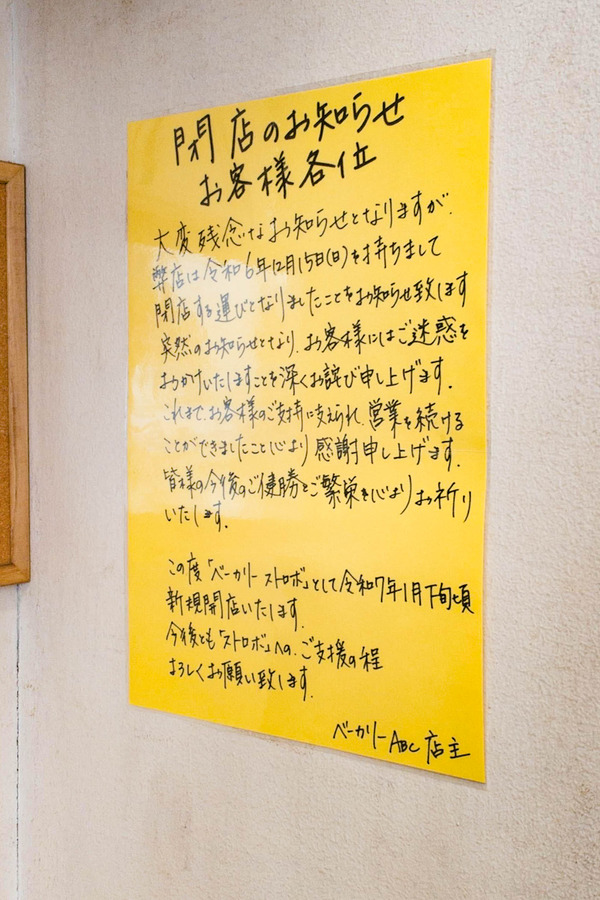 閉店のお知らせ
お客様各位
大変残念なお知らせとなりますが、
弊店は令和6年12月15日(日)を持ちまして
閉店する運びとなりましたことをお知らせ致します
突然のお知らせとなり、お客様にはご迷惑を
おかけいたしますことを深くお詫び申し上げます。
これまで、お客様のご支持に支えられ、営業を続ける
ことができましたこと心より感謝申し上げます。
皆様の今後のご健勝とご繁栄を心よりお祈り
いたします。
この度「ベーカリー ストロボ」として令和7年1月下旬頃
新規開店いたします。
今後とも「ストロボ」への、ご支援の程
よろしくお願い致します。
ベーカリーABC 店主